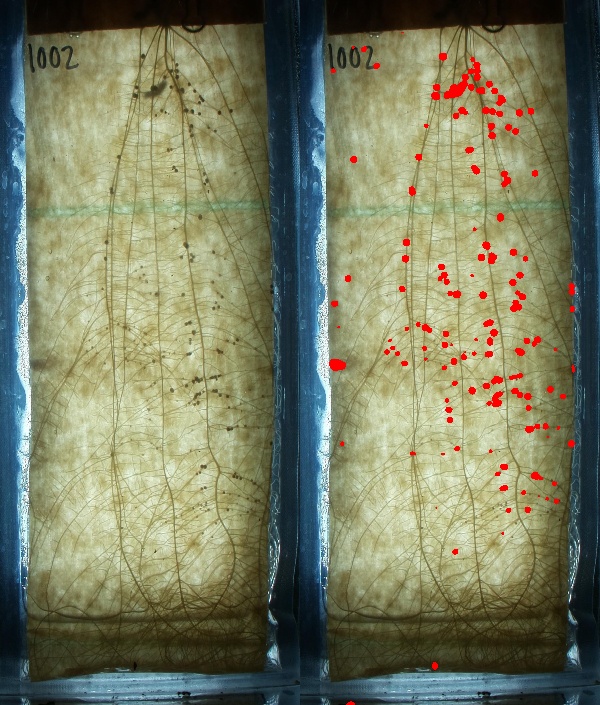 1002 1002